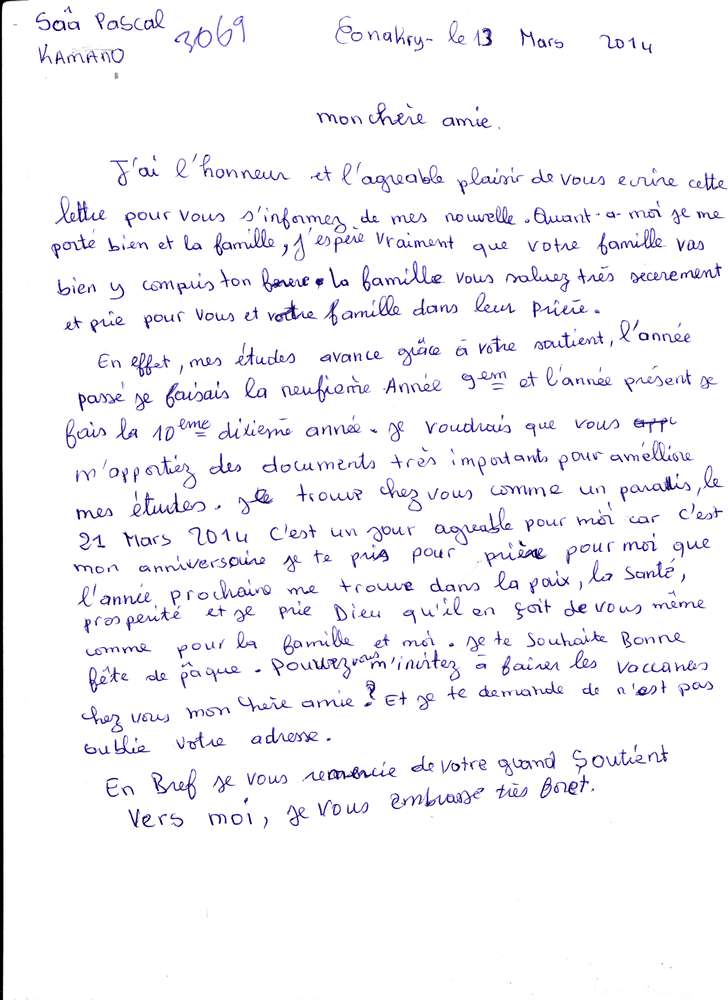 Saâ Pascal
KAMANO
3069
Conakry- le 13 Mars 2014
mon chère amie.
J'ai l'honneur et l'agreable plaisir de vous ecrire cette
lettre pour vous s'informez de mes nouvelle. Quant-a-moi je me
porté bien et la famille, j'espère vraiment que votre famille vas
bien y compris ton . la famille vous saluez très secerement
et prie pour vous et votre famille dans leur prière.
En effet, mes études avance grâce à votre soutient, l'année
passé je faisais la neufieme Année 9em et l'année présent je
fais la 10eme dixieme année. je voudrais que vous
m'apportiez des documents très importants pour amélliore
mes études. je trouve chez vous comme un paradis, le
21 Mars 2014 C'est un jour agreable pour moi car c'est
mon anniversaire je te pris pour prière pour moi que
l'année prochaine me trouve dans la paix, la santé,
prosperité et je prie Dieu qu'il en soit de vous même
comme pour la famille et moi. je te souhaite Bonne
fête de pâque. Pouvez vous m'invitez à fairer les vaccances
chez vous mon chère amie? Et je te demande de n'est pas
oublie votre adresse.
En Bref je vous remercie de votre grand soutient
Vers moi, je vous embrasse très foret.